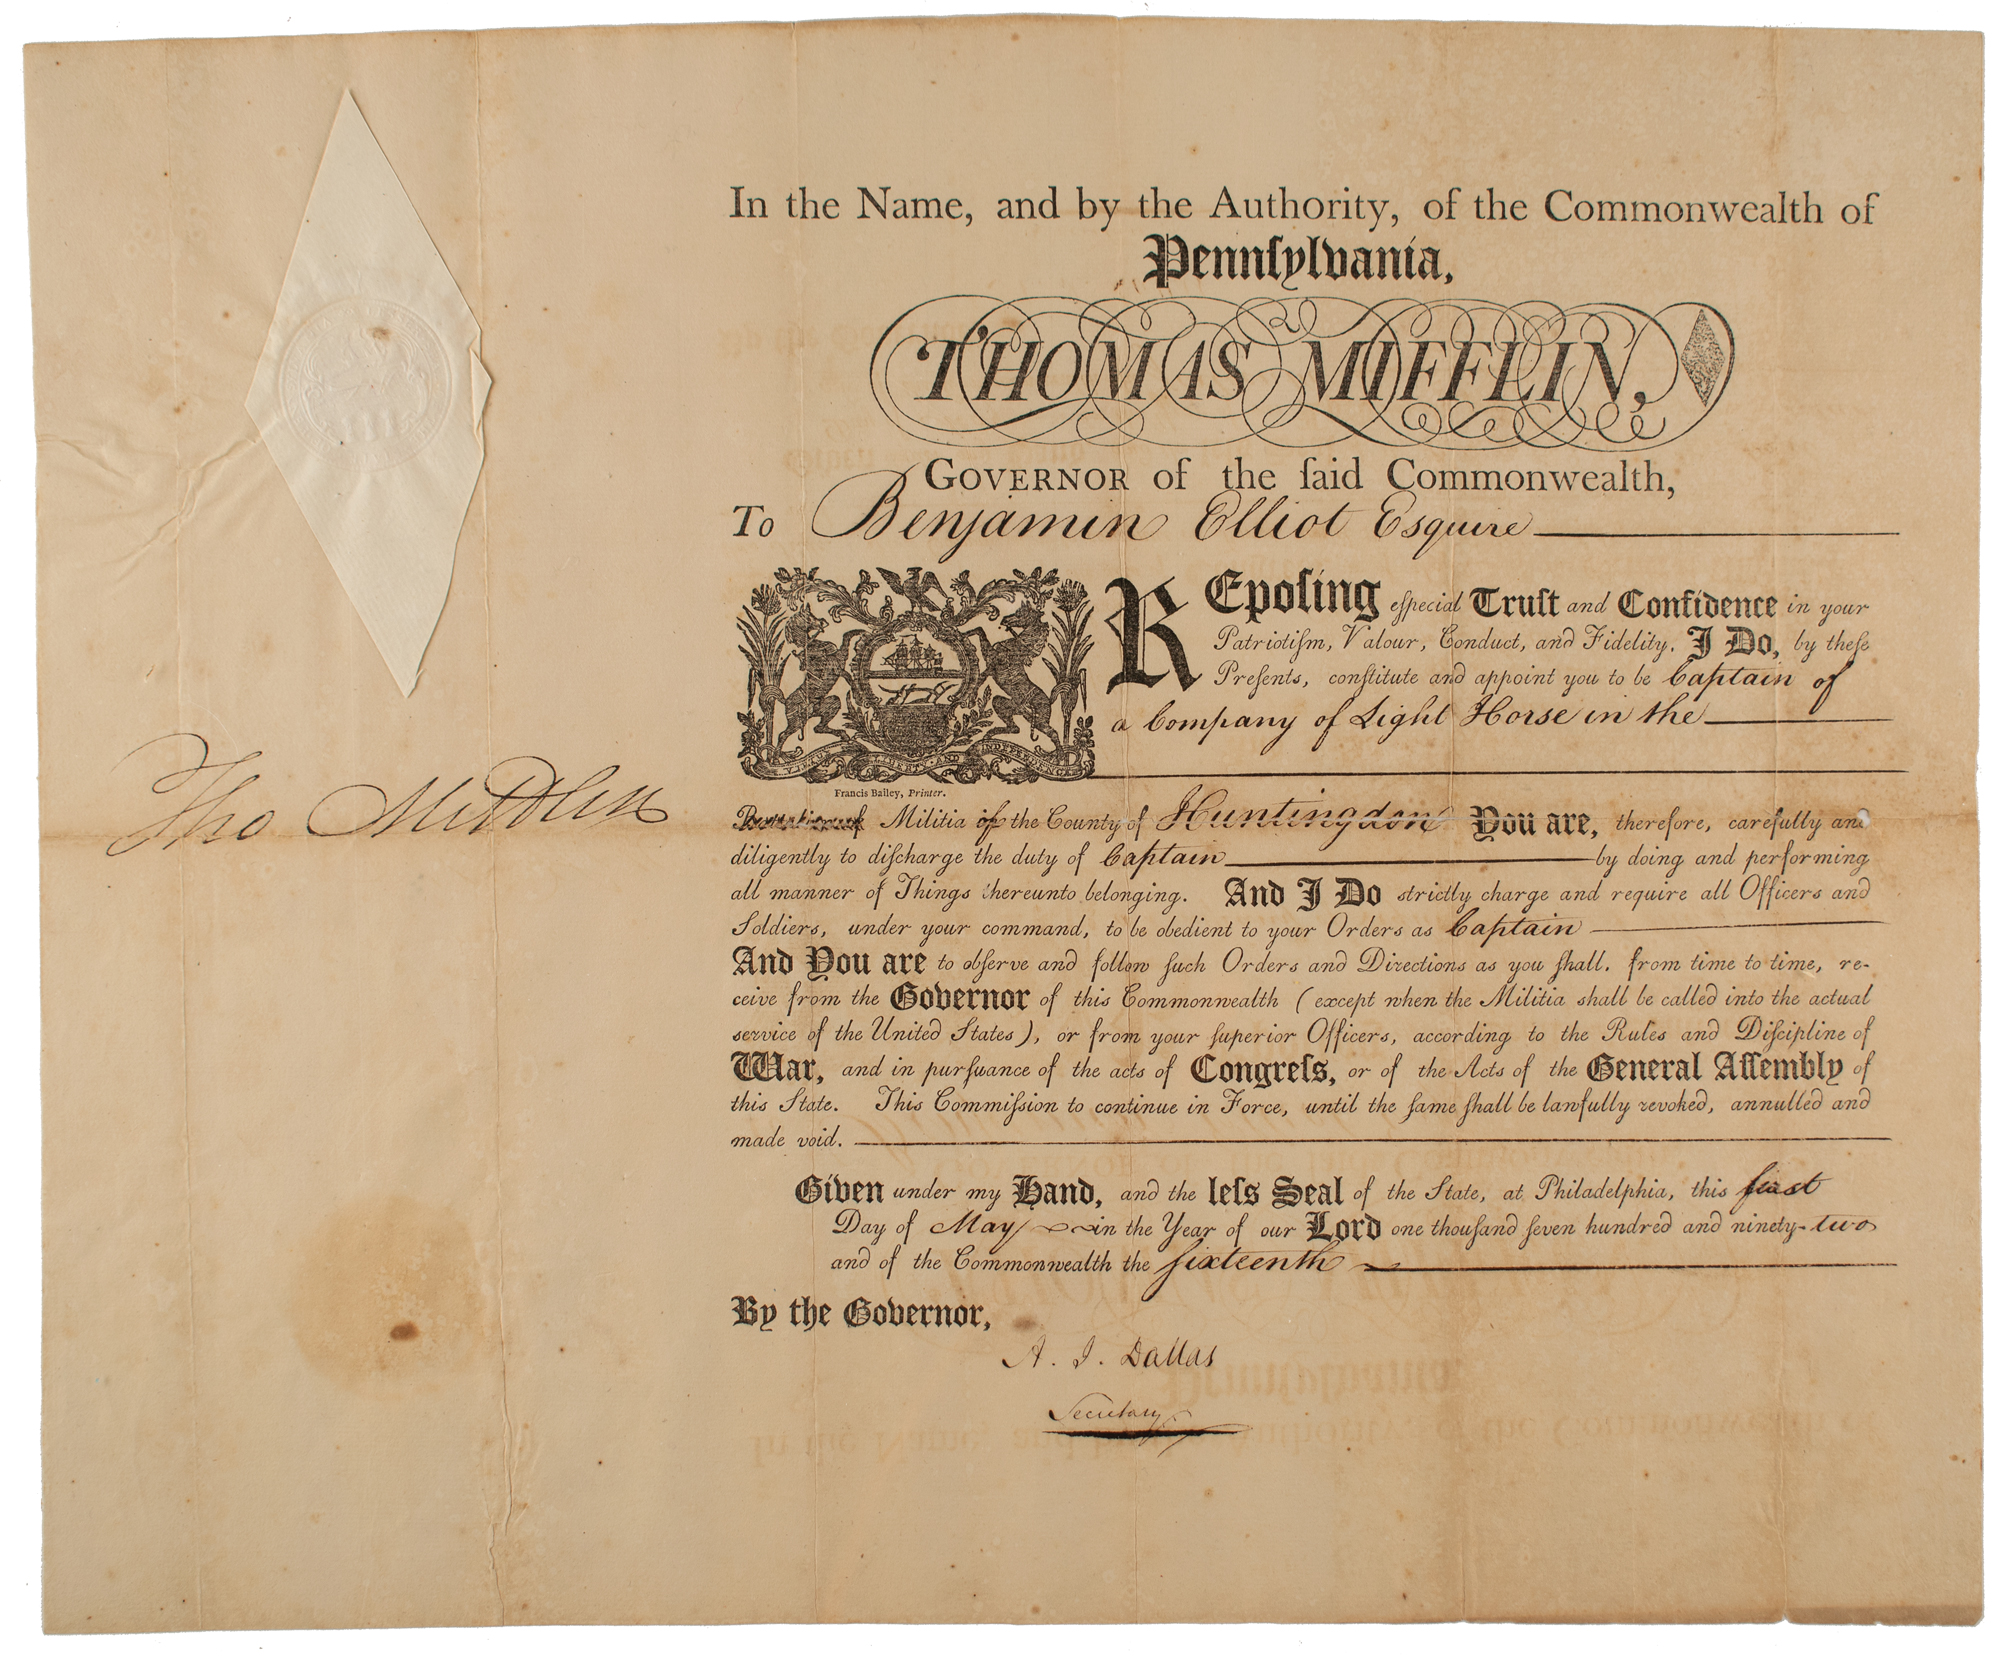 In the Name, and by the Authority, of the Commonwealth of
Pennſylvania,
THOMAS MIFFLIN,
GOVERNOR of the ſaid Commonwealth,
To Benjamin Elliot Esquire
REpoſing eſpecial Truſt and Confidence in your
Patriotiſm, Valour, Conduct, and Fidelity. I Do, by theſe
Preſents, conſtitute and appoint you to be Captain of
a Company of Light Horse in the
VIRTUE LIBERTY AND INDEPENDENCE
Francis Bailey, Printer.
Militia of the County of Huntingdon You are, therefore, carefully and
diligently to diſcharge the duty of Captain by doing and performing
all manner of Things thereunto belonging. And I Do strictly charge and require all Officers and
Soldiers, under your command, to be obedient to your Orders as Captain
And You are to obſerve and follow ſuch Orders and Directions as you ſhall, from time to time, re-
ceive from the Governor of this Commonwealth (except when the Militia shall be called into the actual
service of the United States), or from your ſuperior Officers, according to the Rules and Diſcipline of
War, and in purſuance of the acts of Congreſs, or of the Acts of the General Aſſembly of
this State. This Commiſſion to continue in Force, until the ſame ſhall be lawfully revoked, annulled and
made void.
Given under my Hand, and the leſs Seal of the State, at Philadelphia, this first
Day of May in the Year of our Lord one thouſand ſeven hundred and ninety-two
and of the Commonwealth the ſixteenth
By the Governor,
A. J. Dallas
Secretary
Tho Mifflin